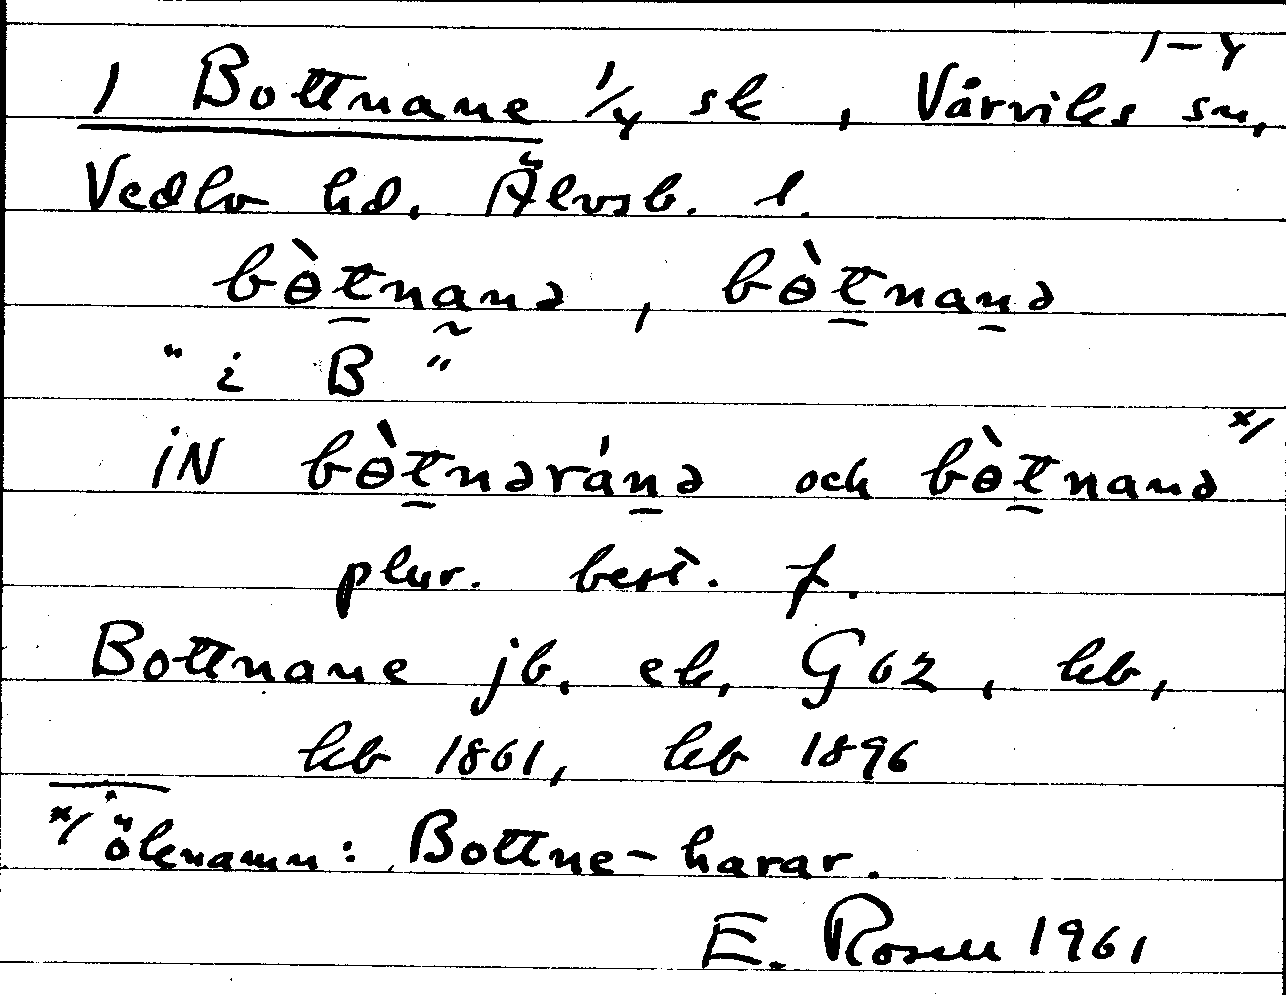 1-4
1 Bottnane 1/4 sk, Vårviks sn,
Vedbo hd. Älvsb. l.
bɵ̀t̠nan̰ə, bɵ̀t̠nan̠ə
"i B"
iN bɵ̀t̠nərán̠ə och bɵ̀t̠nanə x/
plur. best. f.
Bottnane jb. ek, G 62, kb,
kb 1861, kb 1896
x/ öknamn: Bottne-harar.
E. Rosell 1961